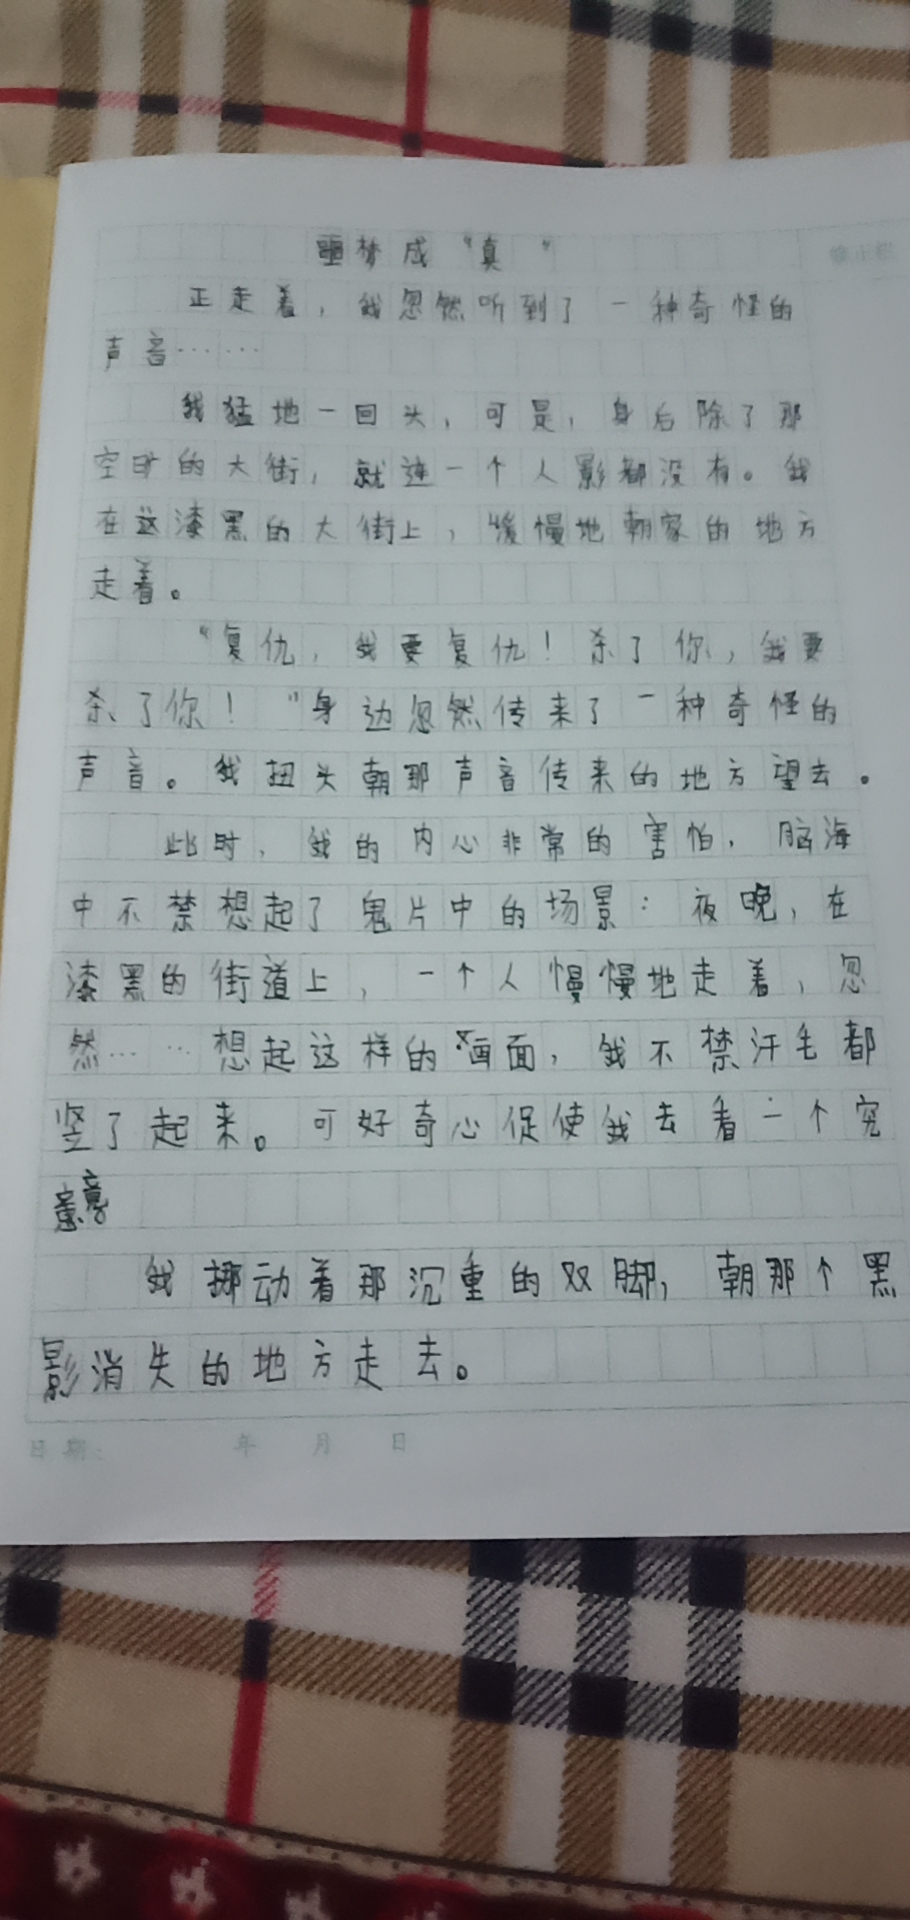 噩梦成“真”
正走着，我忽然听到了一种奇怪的
声音……
我猛地一回头，可是，身后除了那
空旷的大街，就连一个人影都没有。我
在这漆黑的大街上，缓慢地朝家的地方
走着。
“复仇，我要复仇！杀了你，我要
杀了你！”身边忽然传来了一种奇怪的
声音。我扭头朝那声音传来的地方望去。
此时，我的内心非常的害怕，脑海
中不禁想起了鬼片中的场景：夜晚，在
漆黑的街道上，一个人慢慢地走着，忽
然……想起这样的画面，我不禁汗毛都
竖了起来。可好奇心促使我去看一个究
我挪动着那沉重的双脚，朝那个黑
影消失的地方走去。
日期： 年 月 日